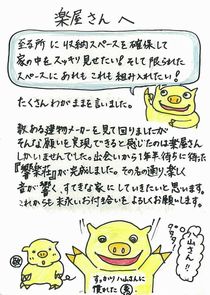 楽屋さんへ
至る所に収納スペースを確保して
家の中をスッキリ見せたい!そして限られた
スペースにあれもこれも組み入れたい!
たくさんわがままを言いました。
数ある建物メーカーを見て回りましたが
そんな願いを実現できると感じたのは楽屋さん
しかいませんでした。出会いから1年半待ちに待った
『響楽荘』が完成しました。その名の通り、楽しい
音が響く、すてきな家にしていきたいと思います。
これからも末永いお付き合いをよろしくお願いします。
八山さん!!
すっかり八山さんに
慣れた